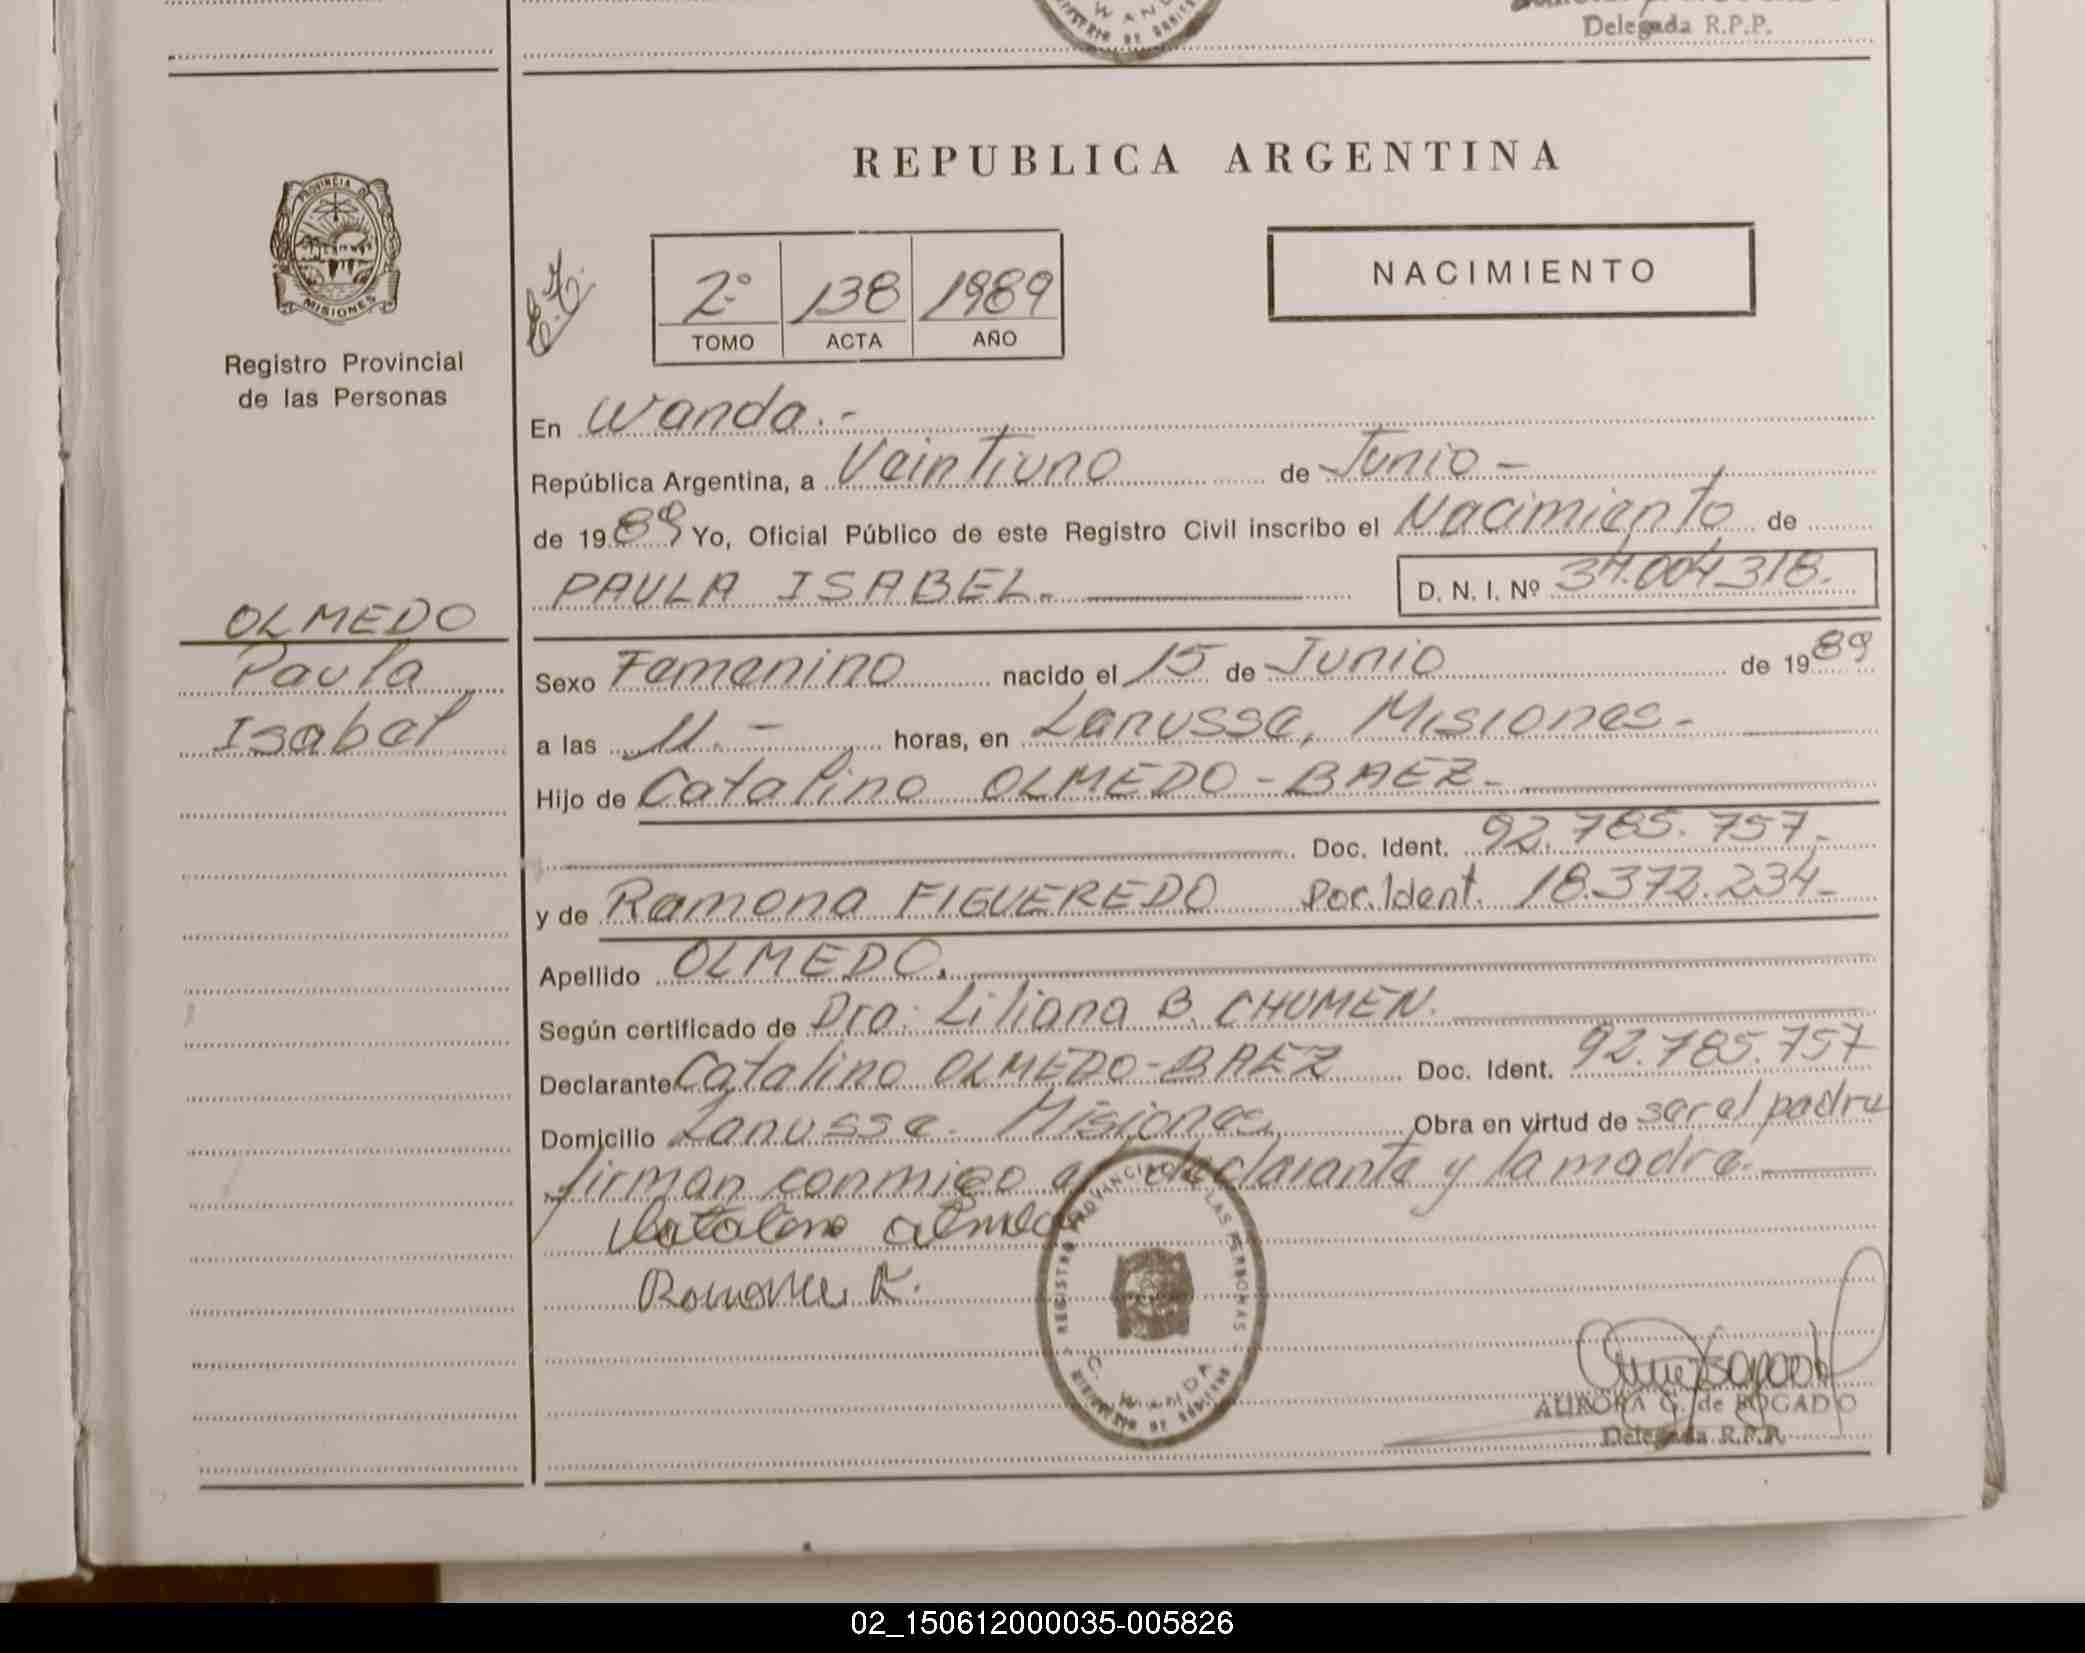 Delegada R.P.P.
REPUBLICA ARGENTINA
PROVINCIA DE
MISIONES
Registro Provincial
de las Personas
2º 138 1989
TOMO ACTA AÑO
NACIMIENTO
En Wanda.-
República Argentina, a Veintiuno de Junio -
de 1989 Yo, Oficial Público de este Registro Civil inscribo el Nacimiento de
PAULA ISABEL.- D. N. I. Nº 34.004.318.
OLMEDO
Paula
Isabel
Sexo Femenino nacido el 15 de Junio de 1989
a las 11.- horas, en Lanusse, Misiones-
Hijo de Catalino OLMEDO-BAEZ-
Doc. Ident. 92.785.757.-
y de Ramona FIGUEREDO Doc. Ident. 18.372.234-
Apellido OLMEDO.
Según certificado de Dra: Liliana B. CHUMEN.
Declarante Catalino OLMEDO-BAEZ Doc. Ident. 92.785.757
Domicilio Lanusse. Misiones, Obra en virtud de ser el padre
firman conmigo el declarante y la madre.
Catalino olmedo
Ramona F.
REGISTRO PROVINCIAL DE LAS PERSONAS
C. WANDA
MINISTERIO DE GOBIERNO
AURORA G. de BOGADO
Delegada R.P.P.
02_150612000035-005826